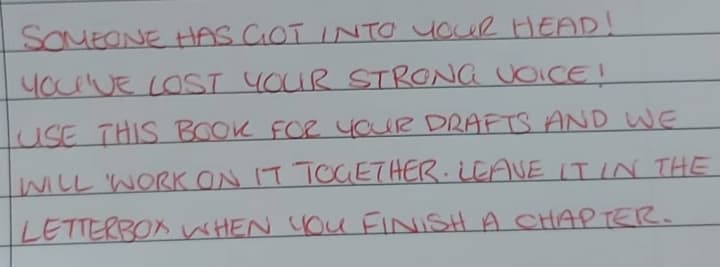 SOMEONE HAS GOT INTO YOUR HEAD!
YOU'VE LOST YOUR STRONG VOICE!
USE THIS BOOK FOR YOUR DRAFTS AND WE
WILL WORK ON IT TOGETHER. LEAVE IT IN THE
LETTERBOX WHEN YOU FINISH A CHAPTER.